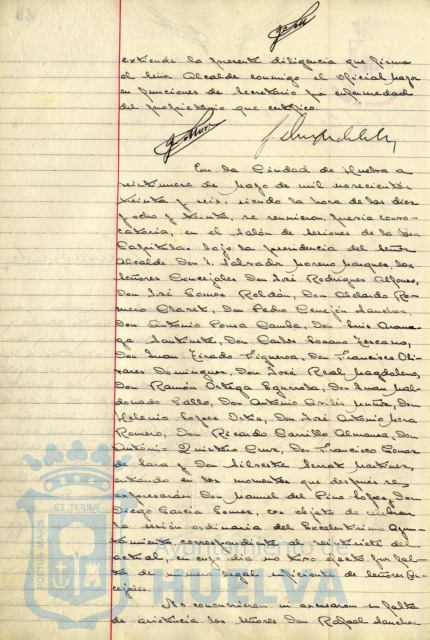 extiende la presente diligencia que firma
el Señor Alcalde conmigo el Oficial Mayor
en funciones de Secretario por enfermedad
del propietario que certifico.
En la Ciudad de Huelva a
veintinueve de Mayo de mil novecientos
treinta y seis, siendo la hora de las diez
y ocho y treinta, se reunieron, previa convo-
catoria, en el Salón de sesiones de la Casa
Capitular bajo la presidencia del Señor
Alcalde Don Salvador Moreno Marquez, los
Señores Concejales Don José Rodriguez Alfonso,
Don José Gomez Roldán, Don Abdardo Ro-
mero Claret, Don Pedro Cerejón Sanchez,
Don Antonio Ponsa Camba, Don Luis
Don Carlos Lozano Toscano,
Don Juan Tirado Figueroa, Don Francisco Oli-
vares Dominguez, Don José Real Magdaleno,
Don Ramón Ortega Don Juan Mal-
donado Gallo, Don Antonio Avilés Muñoz, Don
Melenio Lopez Don José Antonio Mora
Romero, Don Ricardo Carrillo Almansa, Don
Antonio Quintino Cruz, Don Francisco Gomez
de Lara y Don Silvestre Serrat Martinez,
entrando en los momentos que después se
expresarán Don Manuel del Pino Lopez y Don
Diego Garcia Gomez, con objeto de celebrar
la sesión ordinaria del Excelentísimo Ayun-
tamiento correspondiente al veintisiete del
actual, en cuyo dia no tuvo efecto por fal-
ta de numero legal suficiente de señores Con-
cejales.
No concurrieron ni excusaron su falta
de asistencia los señores Don Rafael Sanchez
PORTUS MARIS ET TERRAE
Ayuntamiento de
HUELVA